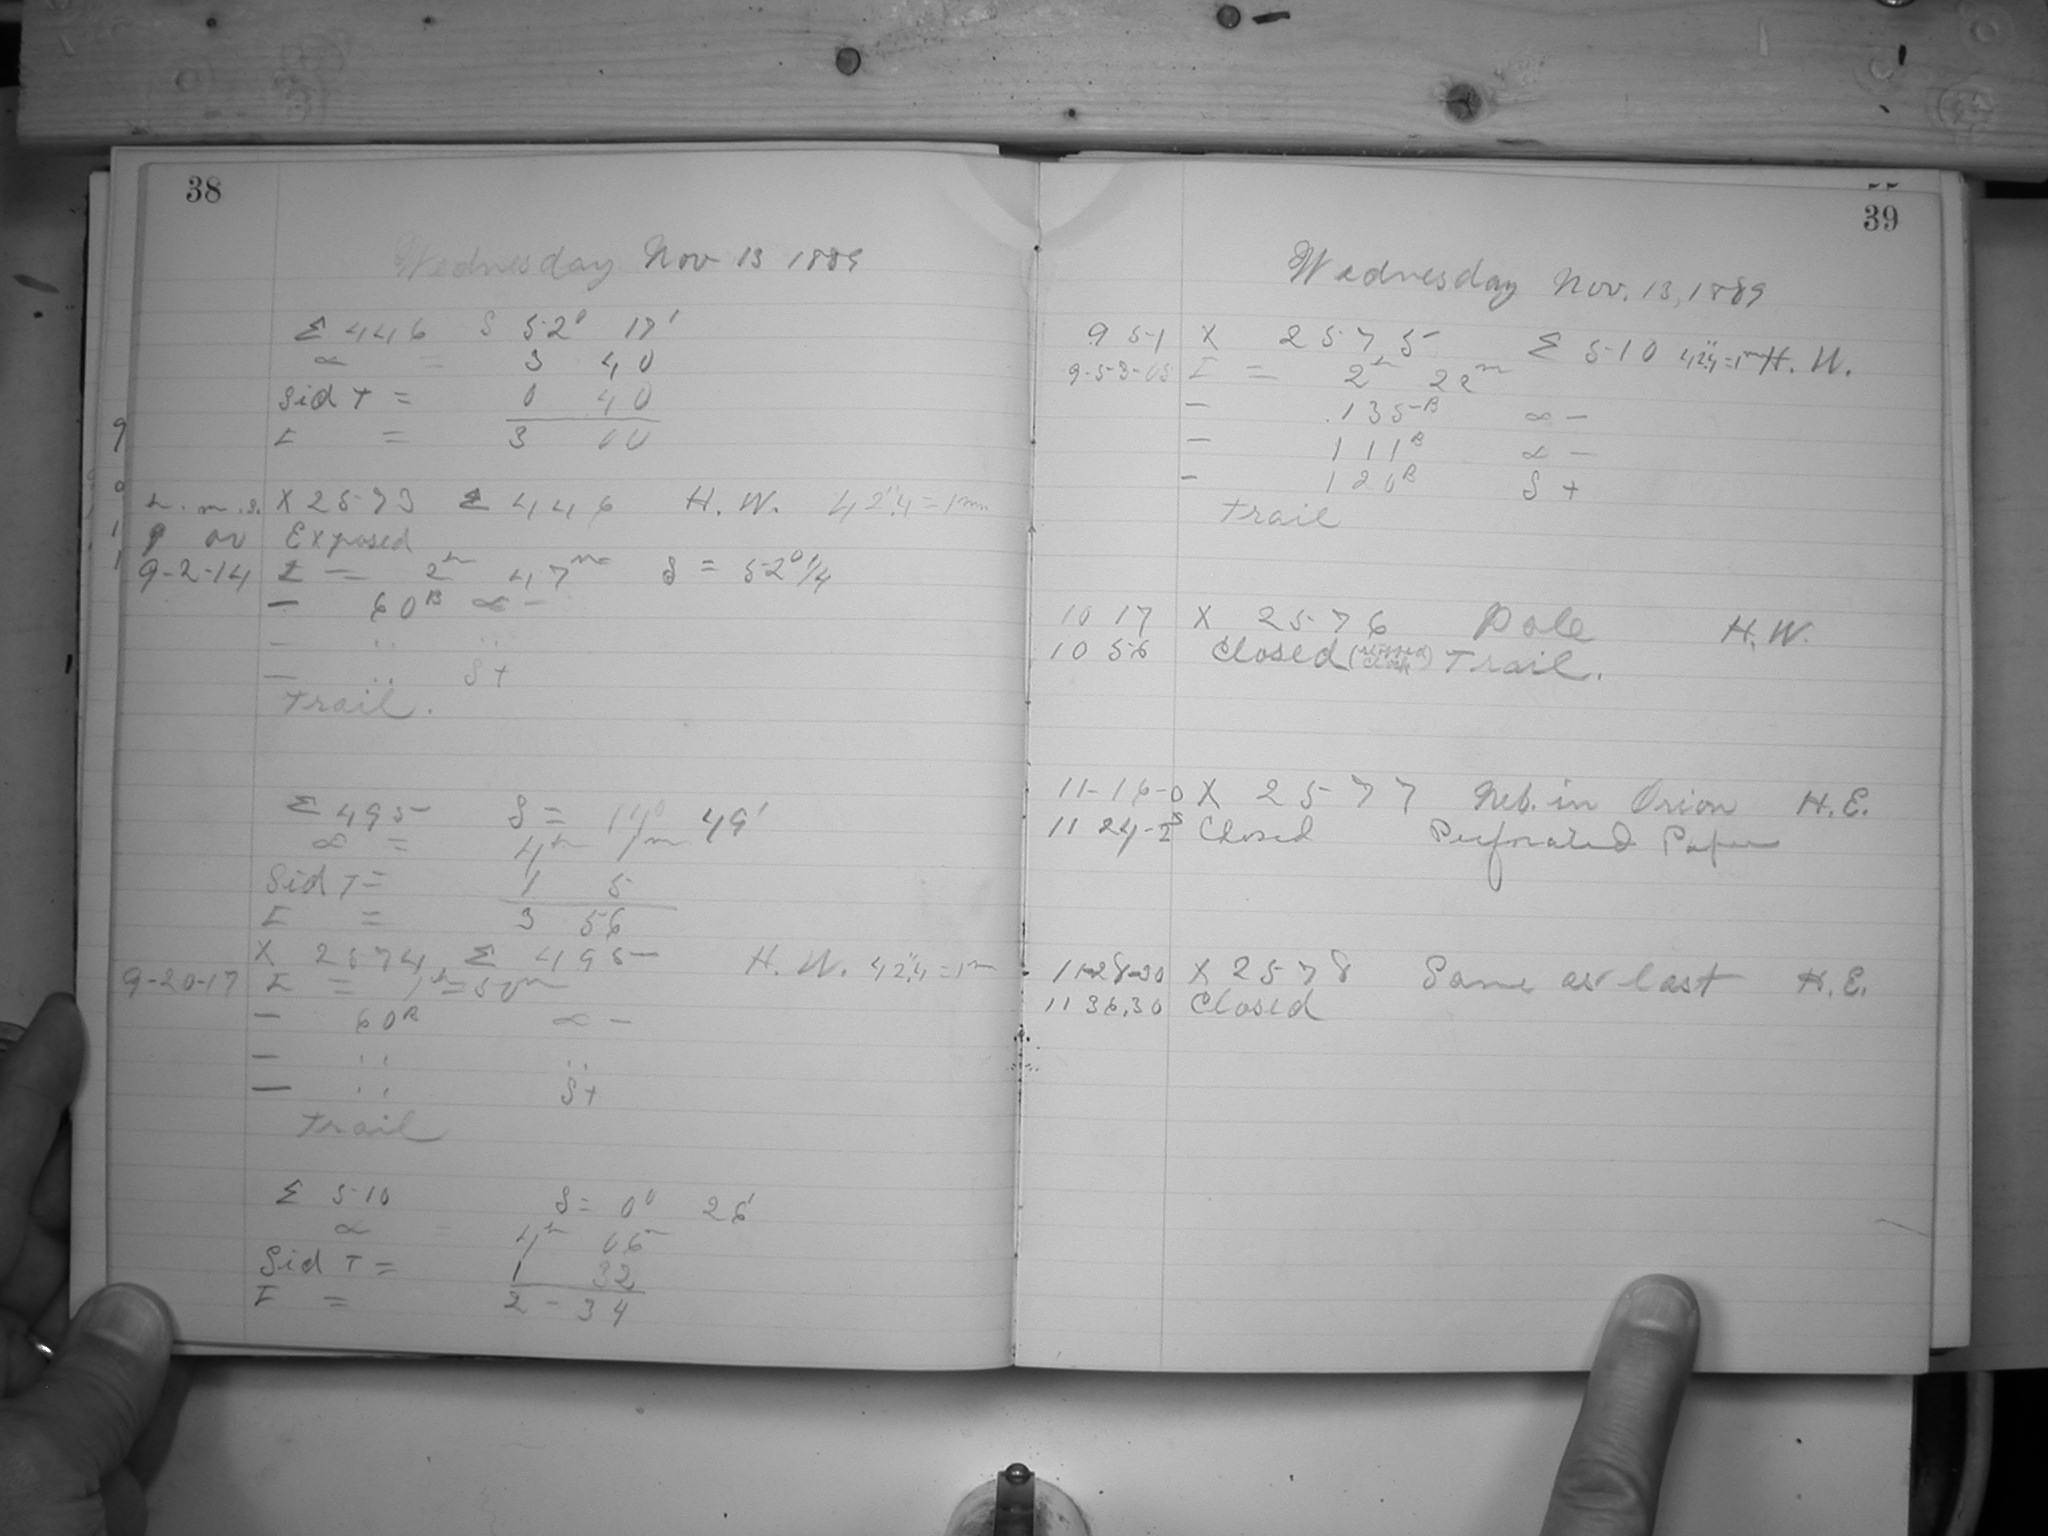 38
Wednesday Nov 13 1889
Σ 446 δ 52° 17'
α = 3 40
Sid T = 0 40
I = 3 00
h. m. s. X 2573 Σ 446 H. W. 42".4 = 1mm
9 00 Exposed
9-2-14 I = 2h 47m δ = 52°1/4
— 60B α -
— " "
— " δ +
Trail.
Σ 495 δ = 14° 49'
α = 4h 1m
Sid T = 1 5
I = 3 56
X 2574 Σ 495 H. W. 42".4 = 1m
9-20-17 I =
— 60B α -
— " "
— " δ +
Trail
Σ 510 δ = 0° 26'
α = 4h 06m
Sid T = 1 32
I = 2 - 34
39
Wednesday Nov. 13, 1889
9 51 X 2575 Σ 510 42".4 = 1m H. W.
9-53-05 I = 2h 22m
— 135B α -
— 111B α -
— 120B δ +
Trail
10 17 X 2576 Pole H. W.
10 56 Closed (stopped clock) Trail.
11-16-0 X 2577 Neb. in Orion H. E.
11 24-25 Closed Perforated Paper
11-28-30 X 2578 Same as last H. E.
11 36.30 Closed